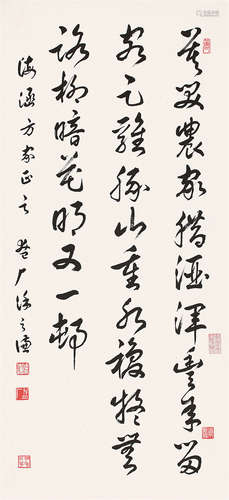 莫笑農家臘酒渾豐年留
客足雞豚山重水複疑無
路柳暗花明又一邨
海涵方家正之 厂徐之謙